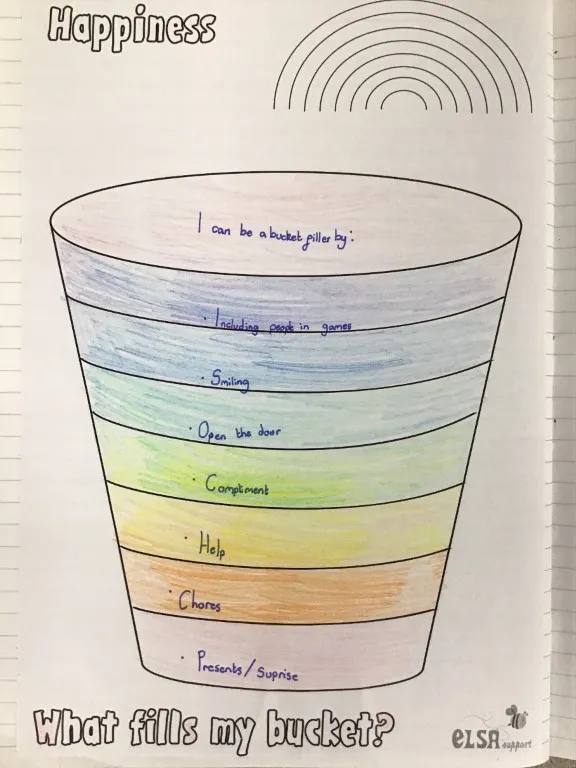 Happiness
I can be a bucket filler by:
· Including people in games
· Smiling
· Open the door
· Compliment
· Help
· Chores
· Presents/Suprise
What fills my bucket?
ELSA support